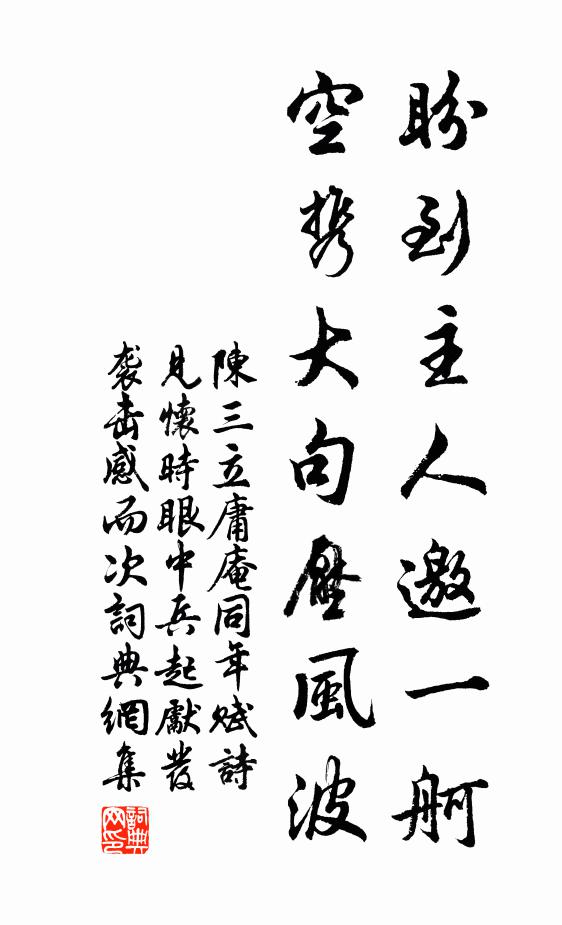 盼到主人邀一舸
空攜大句壓風波
陳三立庸庵同年賦詩
見懷時眼中兵起獻發
襲击感而次詞典網集
詞典
网印